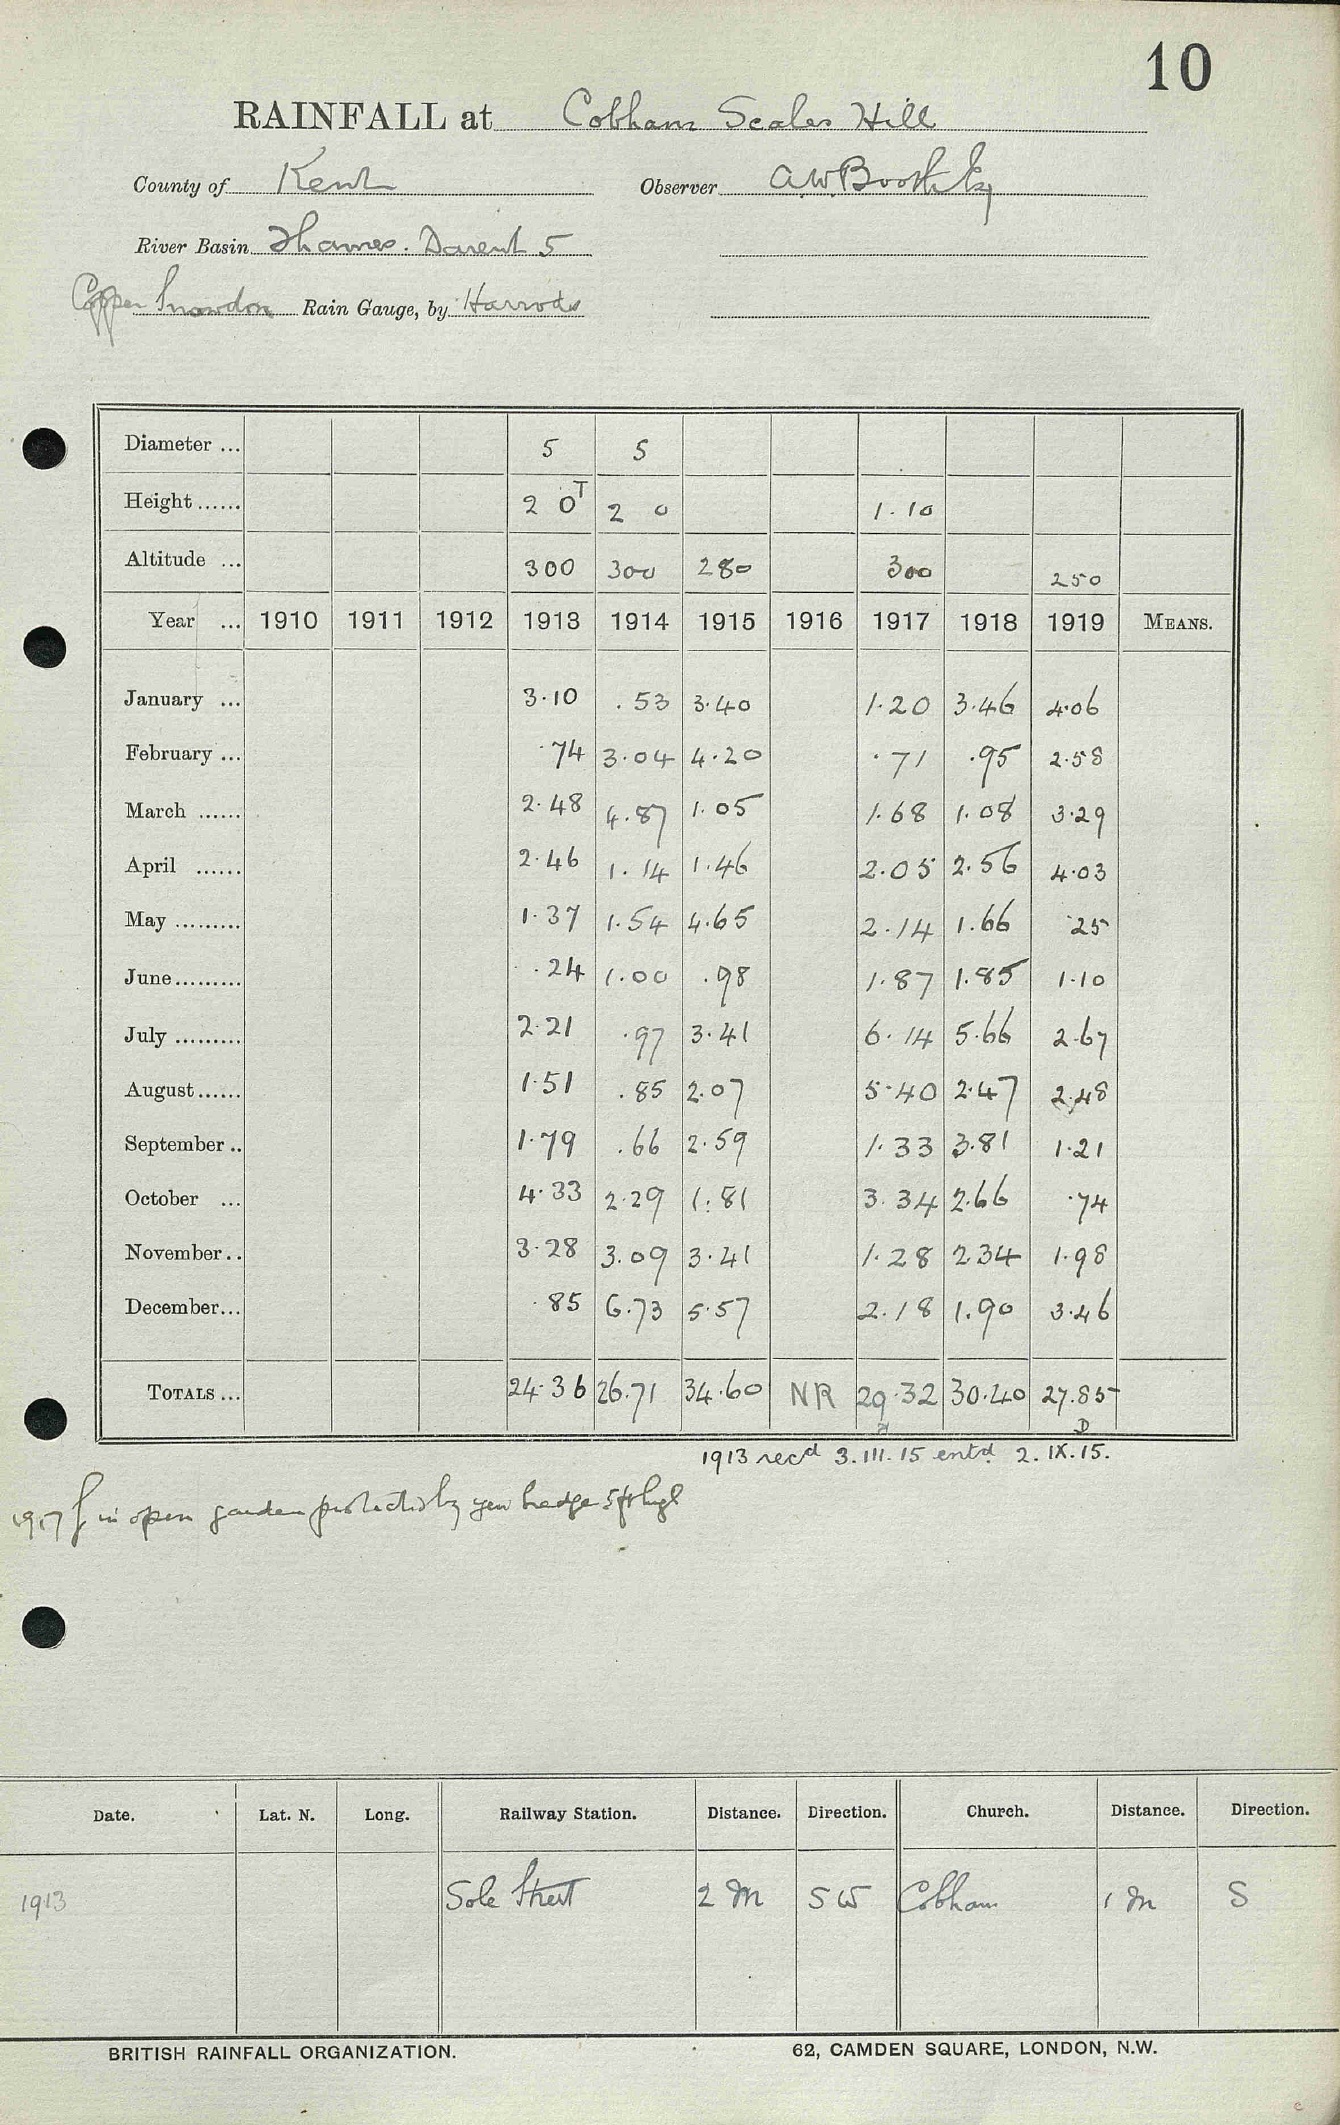 10
RAINFALL at Cobham Scales Hill
County of Kent Observer A.W. Booth Esq
River Basin Thames. Darent 5
Copper Snowdon Rain Gauge, by Harrods
Diameter ... 5 5
Height...... 2 0T 2 0 1.10
Altitude ... 300 300 280 300 250
Year ... 1910 1911 1912 1913 1914 1915 1916 1917 1918 1919 MEANS.
January ... 3.10 .53 3.40 1.20 3.46 4.06
February ... .74 3.04 4.20 .71 .95 2.58
March ...... 2.48 4.87 1.05 1.68 1.08 3.29
April ...... 2.46 1.14 1.46 2.05 2.56 4.03
May ......... 1.37 1.54 4.65 2.14 1.66 .25
June......... .24 1.00 .98 1.87 1.85 1.10
July ......... 2.21 .97 3.41 6.14 5.66 2.67
August...... 1.51 .85 2.07 5.40 2.47 2.48
September .. 1.79 .66 2.59 1.33 3.81 1.21
October ... 4.33 2.29 1.81 3.34 2.66 .74
November.. 3.28 3.09 3.41 1.28 2.34 1.98
December... .85 6.73 5.57 2.18 1.90 3.46
TOTALS ... 24.36 26.71 34.60 NR 29.32 30.40 27.85
D
1913 recd 3.III.15 entd. 2.IX.15.
1917 in open garden protected by yew hedge 5ft high
Date. Lat. N. Long. Railway Station. Distance. Direction. Church. Distance. Direction.
1913 Sole Street 2 M SW Cobham 1 M S
BRITISH RAINFALL ORGANIZATION. 62, CAMDEN SQUARE, LONDON, N.W.